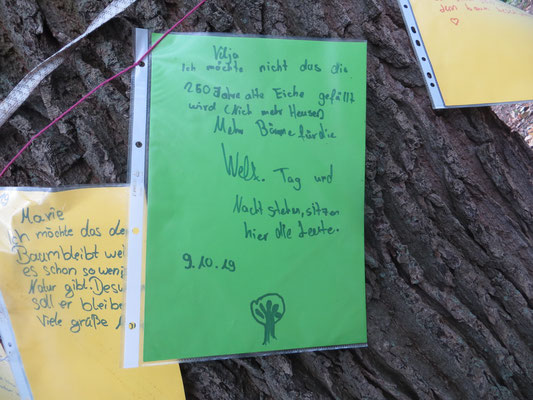 Viljo
Ich möchte nicht das die
250 Jahre alte Eiche gefällt
wird (Nich mehr Heuser)
Mehr Bäume für die
Welt. Tag und
Nacht stehen, sitzen
hier die Leute.
9.10.19
Marie
Ich möchte das de
Baum bleibt weil
es schon so weni
Natur gibt. Desw
soll er bleibe
Viele grüße